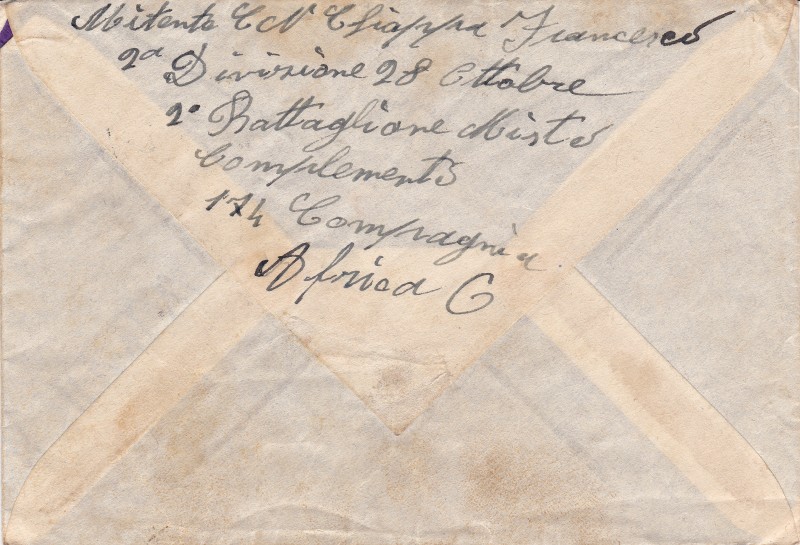 Mitente CN Chiappa Francesco
2a Divisione 28 Ottobre
2° Battaglione Misto
Complemento
174 Compagnia
Africa O